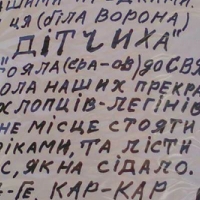 ШИМИ ПРЕДКАМИ.
ЦЯ (БІЛА ВОРОНА)
"ДІТЧИХА"
ТОЯЛА (ЄВА-ОВ) ДО СВЯ
ОЛА НАШИХ ПРЕКРА
ХЛОПЦІВ-ЛЕГІНІВ
НЕ МІСЦЕ СТОЯТИ
РІКАМИ, ТА ЛІСТИ
С, ЯК НА СІДАЛО.
-ГЕ, КАР-КАР